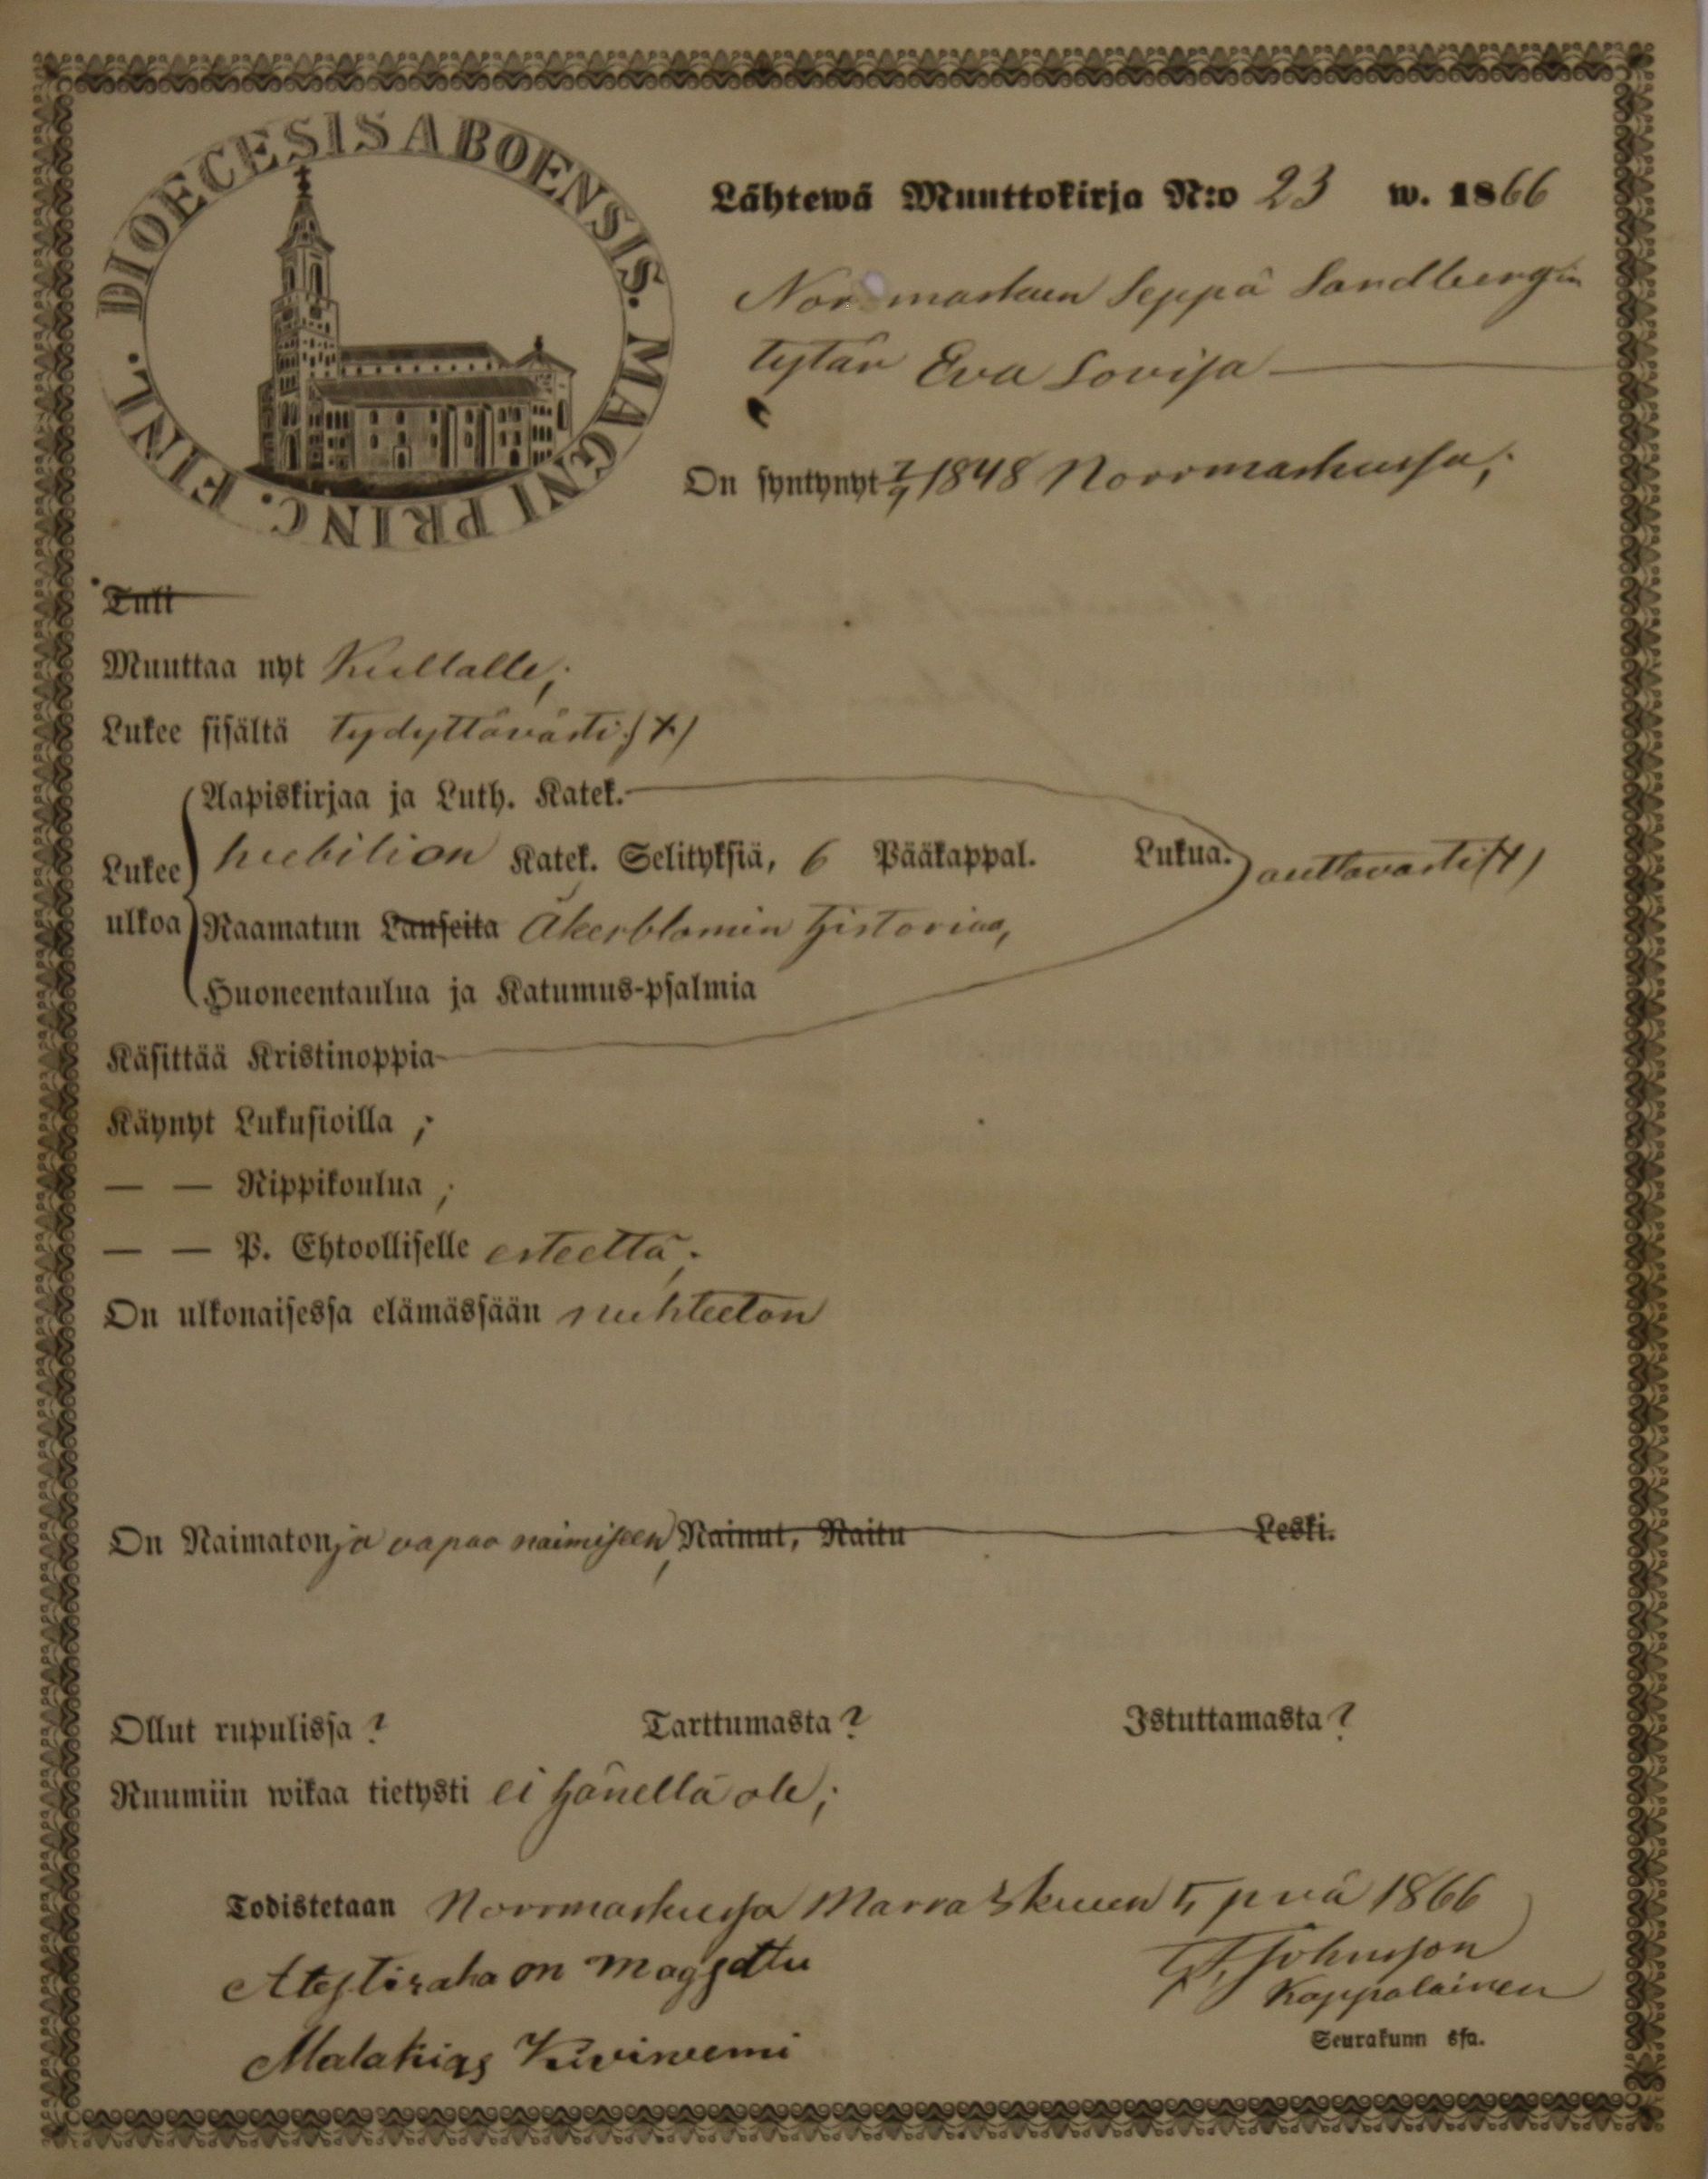 DIOECESIS ABOENSIS. MAGNI PRINC. FINL.
Lähtewä Muuttokirja N:o 23 w. 1866
Norrmarkuen Seppä Sandbergin
tytär Eva Lovisa
On syntynyt 7/9 1848 Norrmarkussa;
Tuli
Muuttaa nyt Kullalle;
Lukee sisältä tydyttävästi (X)
Aapiskirjaa ja Luth. Katek.
Lukee Katek. Selityksiä, 6 Pääkappal. Lukua. auttavasti (X)
ulkoa Raamatun Lauseita Åkerblomin Historiaa,
Huoneentaulua ja Katumus-psalmia
Käsittää Kristinoppia
Käynyt Lukusioilla ;
— — Rippikoulua ;
— — P. Ehtoolliselle esteettä;
On ulkonaisessa elämässään nuhteeton
On Naimaton ja vapaa naimiseen, Nainut, Naitu Leski.
Ollut rupulissa ? Tarttumasta ? Istuttamasta ?
Ruumiin wikaa tietysti ei hänellä ole;
Todistetaan Norrmarkussa Marraskuun 5 pvä 1866
Atestiraha on maggattu Johnsson
Kappalainen
Malakias Kiviniemi
Seurakunn ssa.